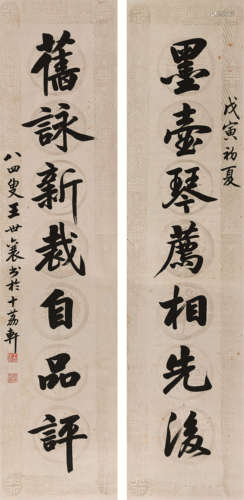 戊寅初夏
墨壺琴薦相先後
舊詠新裁自品評
八四叟王世襄書於十荔軒